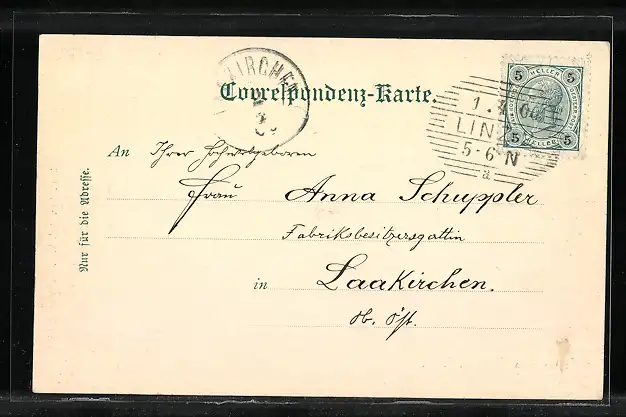 KIRCHEN
Correspondenz-Karte.
5 HELLER 5
1.
LINZ
5-6 N
a
5 HELLER 5
An Ihrer Hochwolgeboren
Frau Anna Schuppler
Fabriksbesitzersgattin
in Laakirchen.
ob. Öst.
Nur für die Adresse.